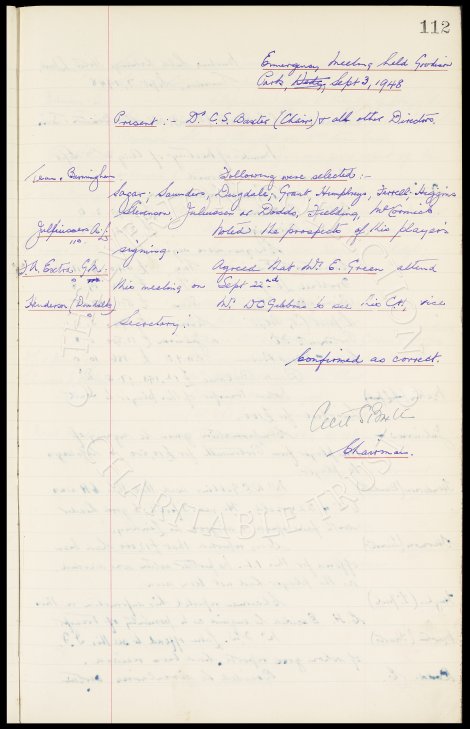 112
Emergency Meeting held Goodison
Park, Sept 3, 1948
Present :- Dr C. S. Baxter (Chair) & all other Directors,
Team v Birmingham
Following were selected :-
Sagar; Saunders, Dugdale, Grant Humphreys, Farrell; Higgins
Stevenson Juliussen or Dodds, Fielding, McCormick
Juliussen A/.
Noted the prospects of this player's
signing.
Extra G/M.
Agreed that Mr. E. Green attend
this meeting on Sept 22nd
Henderson (Dundalk)
Mr. W C Gibbins to see his CH, vice
Secretary.
Confirmed as correct.
Cecil S Baxter
Chairman.
CHARITABLE TRUST